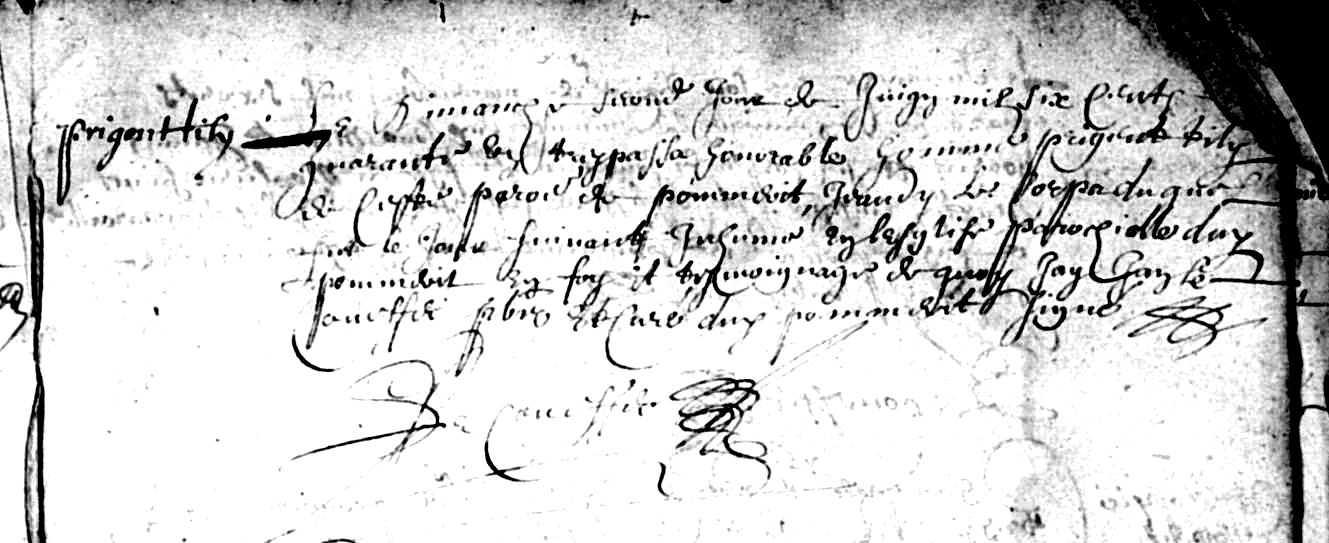 prigent tily
Le Dimanche second Jour de Juign mil six centz
quarante ung trespassa honorable homme prigent tily
de ceste paroe de pommerit, Jeaudy le corps duquel
fut le Jour suivant Inhumé en leglise parochialle dud
pommerit en foy et tesmoignage de quoy Jay Jan le
Caueffer pbre et Curé dud pommerit signé
Le Caueffer